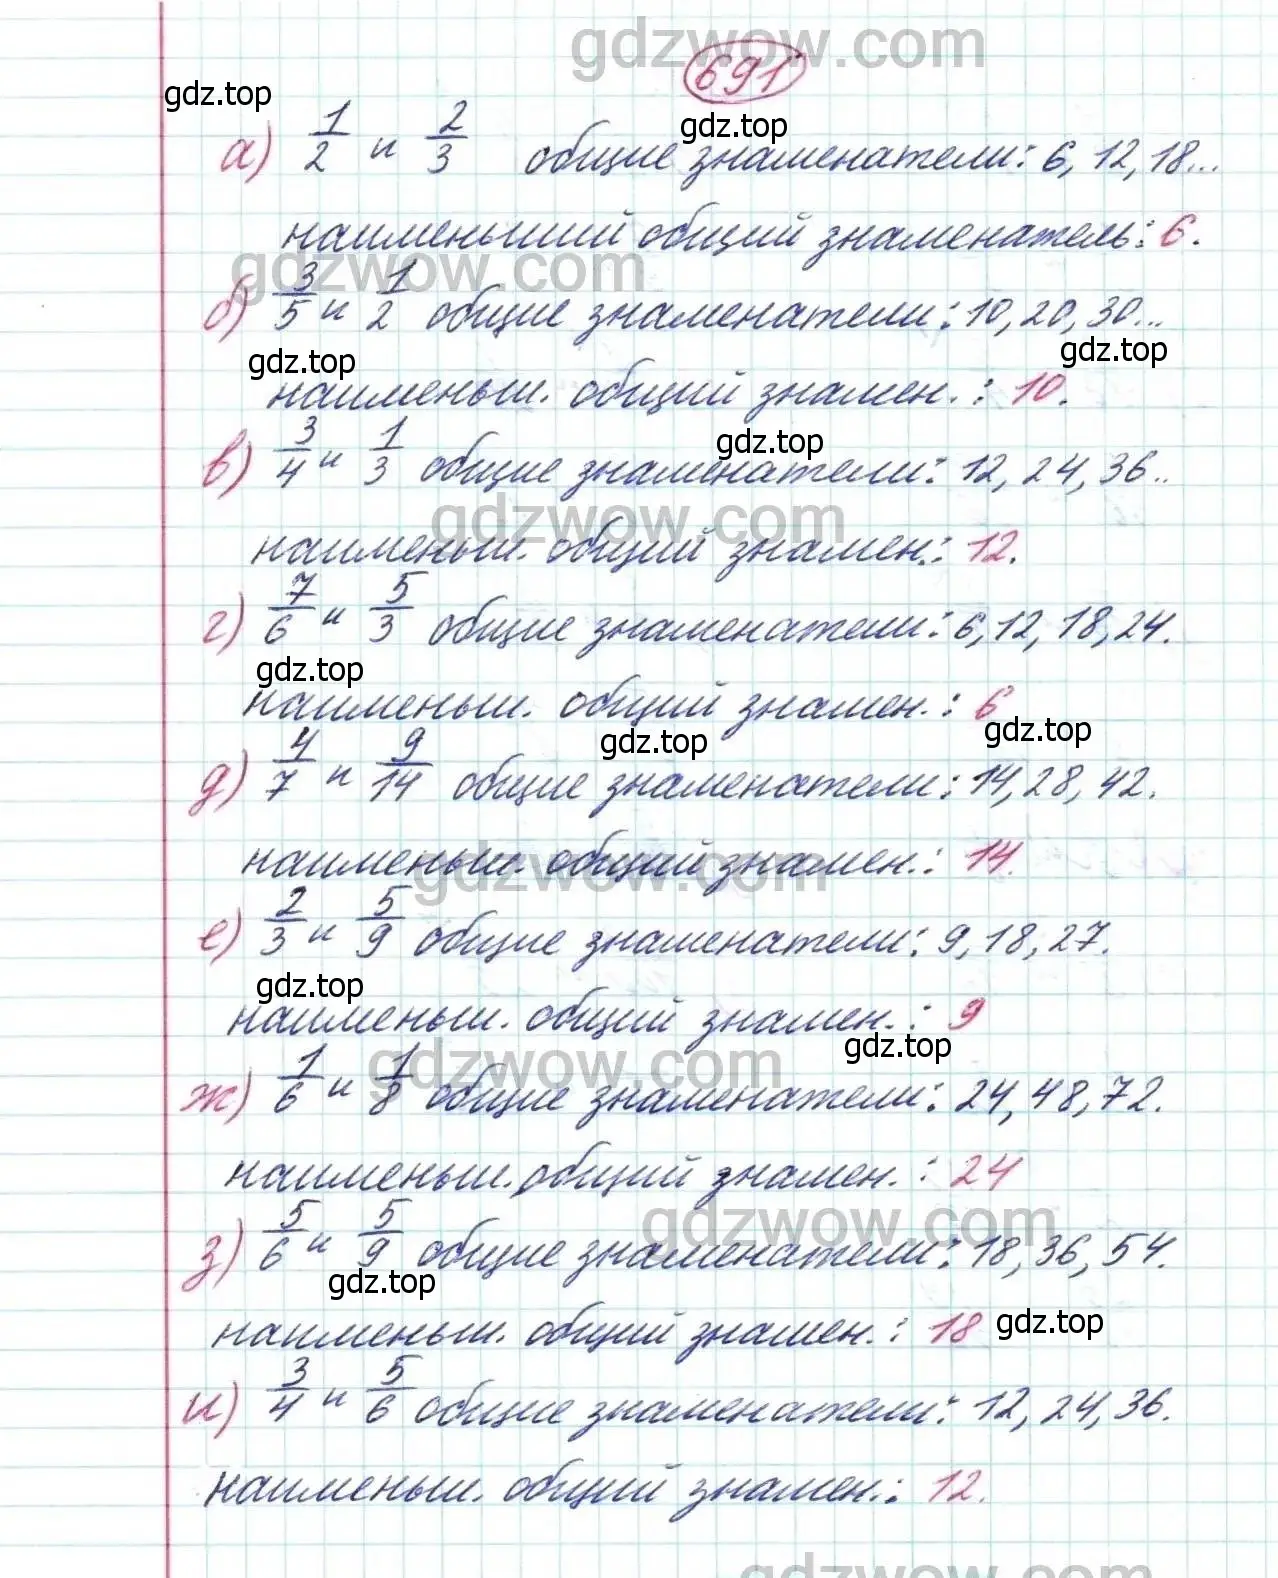 gdzwow.com
691
gdz.top
gdz.top
а) 1/2 и 2/3 общие знаменатели: 6, 12, 18...
наименьший общий знаменатель: 6.
gdzwow.com
б) 3/5 и 1/2 общие знаменатели: 10, 20, 30...
gdz.top
gdz.top
наименьш. общий знамен.: 10.
gdz.top
в) 3/4 и 1/3 общие знаменатели: 12, 24, 36..
gdzwow.com
наименьш. общий знамен.: 12.
г) 7/6 и 5/3 общие знаменатели: 6, 12, 18, 24.
gdz.top
наименьш. общий знамен.: 6
gdz.top
gdz.top
д) 4/7 и 9/14 общие знаменатели: 14, 28, 42.
наименьш. общий знамен.: 14.
gdzwow.com
е) 2/3 и 5/9 общие знаменатели: 9, 18, 27.
gdz.top
наименьш. общий знамен.: 9
gdz.top
gdzwow.com
ж) 1/6 и 1/8 общие знаменатели: 24, 48, 72.
наименьш. общий знамен.: 24
gdzwow.com
з) 5/6 и 5/9 общие знаменатели: 18, 36, 54.
gdz.top
наименьш. общий знамен.: 18
gdz.top
и) 3/4 и 5/6 общие знаменатели: 12, 24, 36.
наименьш. общий знамен.: 12.
gdzwow.com